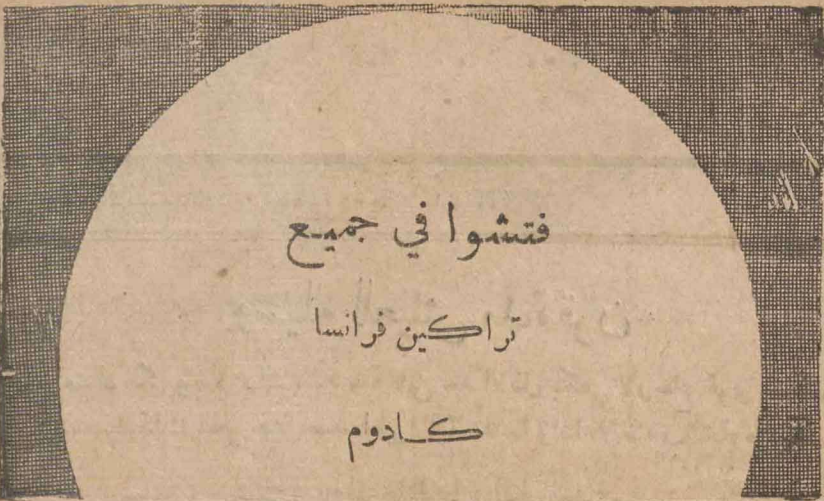 فتشوا في جميع
تراكين فرانسا
كادوم